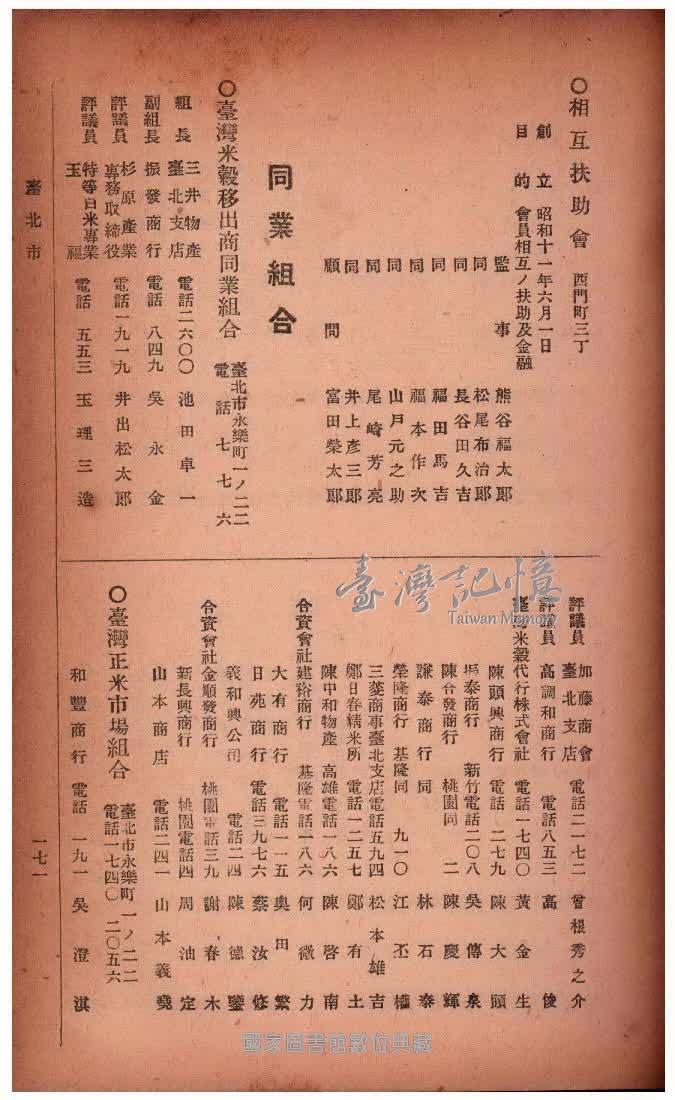 〇相互扶助會 西門町三丁
創立 昭和十一年六月一日
目的 會員相互ノ扶助及金融
監事 熊谷福太郎
同 松尾布治郎
同 長谷田久吉
同 福田馬吉
同 福本作次
同 山戸元之助
同 尾崎芳亮
同 井上彥三郎
顧問 富田榮太郎
同業組合
〇臺灣米穀移出商同業組合 臺北市永樂町一ノ二二 電話 七七六
組長 三井物產臺北支店 電話二六〇〇 池田卓一
副組長 振發商行 電話 八四九 吳永金
評議員 杉原產業專務取締役 電話一九一九 井出松太郎
評議員 特等白米專業玉福 電話 五五三 玉理三造
臺北市
評議員 加藤商會臺北支店 電話二一七二 曾根秀之介
評議員 高調和商行 電話八五三 高俊
臺灣米穀代行株式會社 電話一七四〇 黃金生
陳頭興商行 電話 二七九 陳大頭
泰商行 新竹電話二〇八 吳傳泉
陳合發商行 桃園同 二 陳慶輝
謙泰商行 同 林石泰
榮隆商行 基隆同 九一〇 江丕
三菱商事臺北支店電話五九四 松本雄吉
鄭日春精米所 電話一二五七 鄭有土
陳中和物產 高雄電話一八六 陳啓南
合資會社建裕商行 基隆電話一八六 何微力
大有商行 電話一一五 奧田繁
日苑商行 電話三九七六 蔡汝修
義和興公司 電話二四 陳德鑒
合資會社金順發商行 桃園電話三九 謝春木
新長興商行 桃園電話四 周油定
山本商店 電話二四一 山本義堯
〇臺灣正米市場組合 臺北市永樂町一ノ二二 電話一七四〇 二〇五六
和豐商行 電話 一九一 吳澄淇
一七一
臺灣記憶
Taiwan Memory
國家圖書館數位典藏